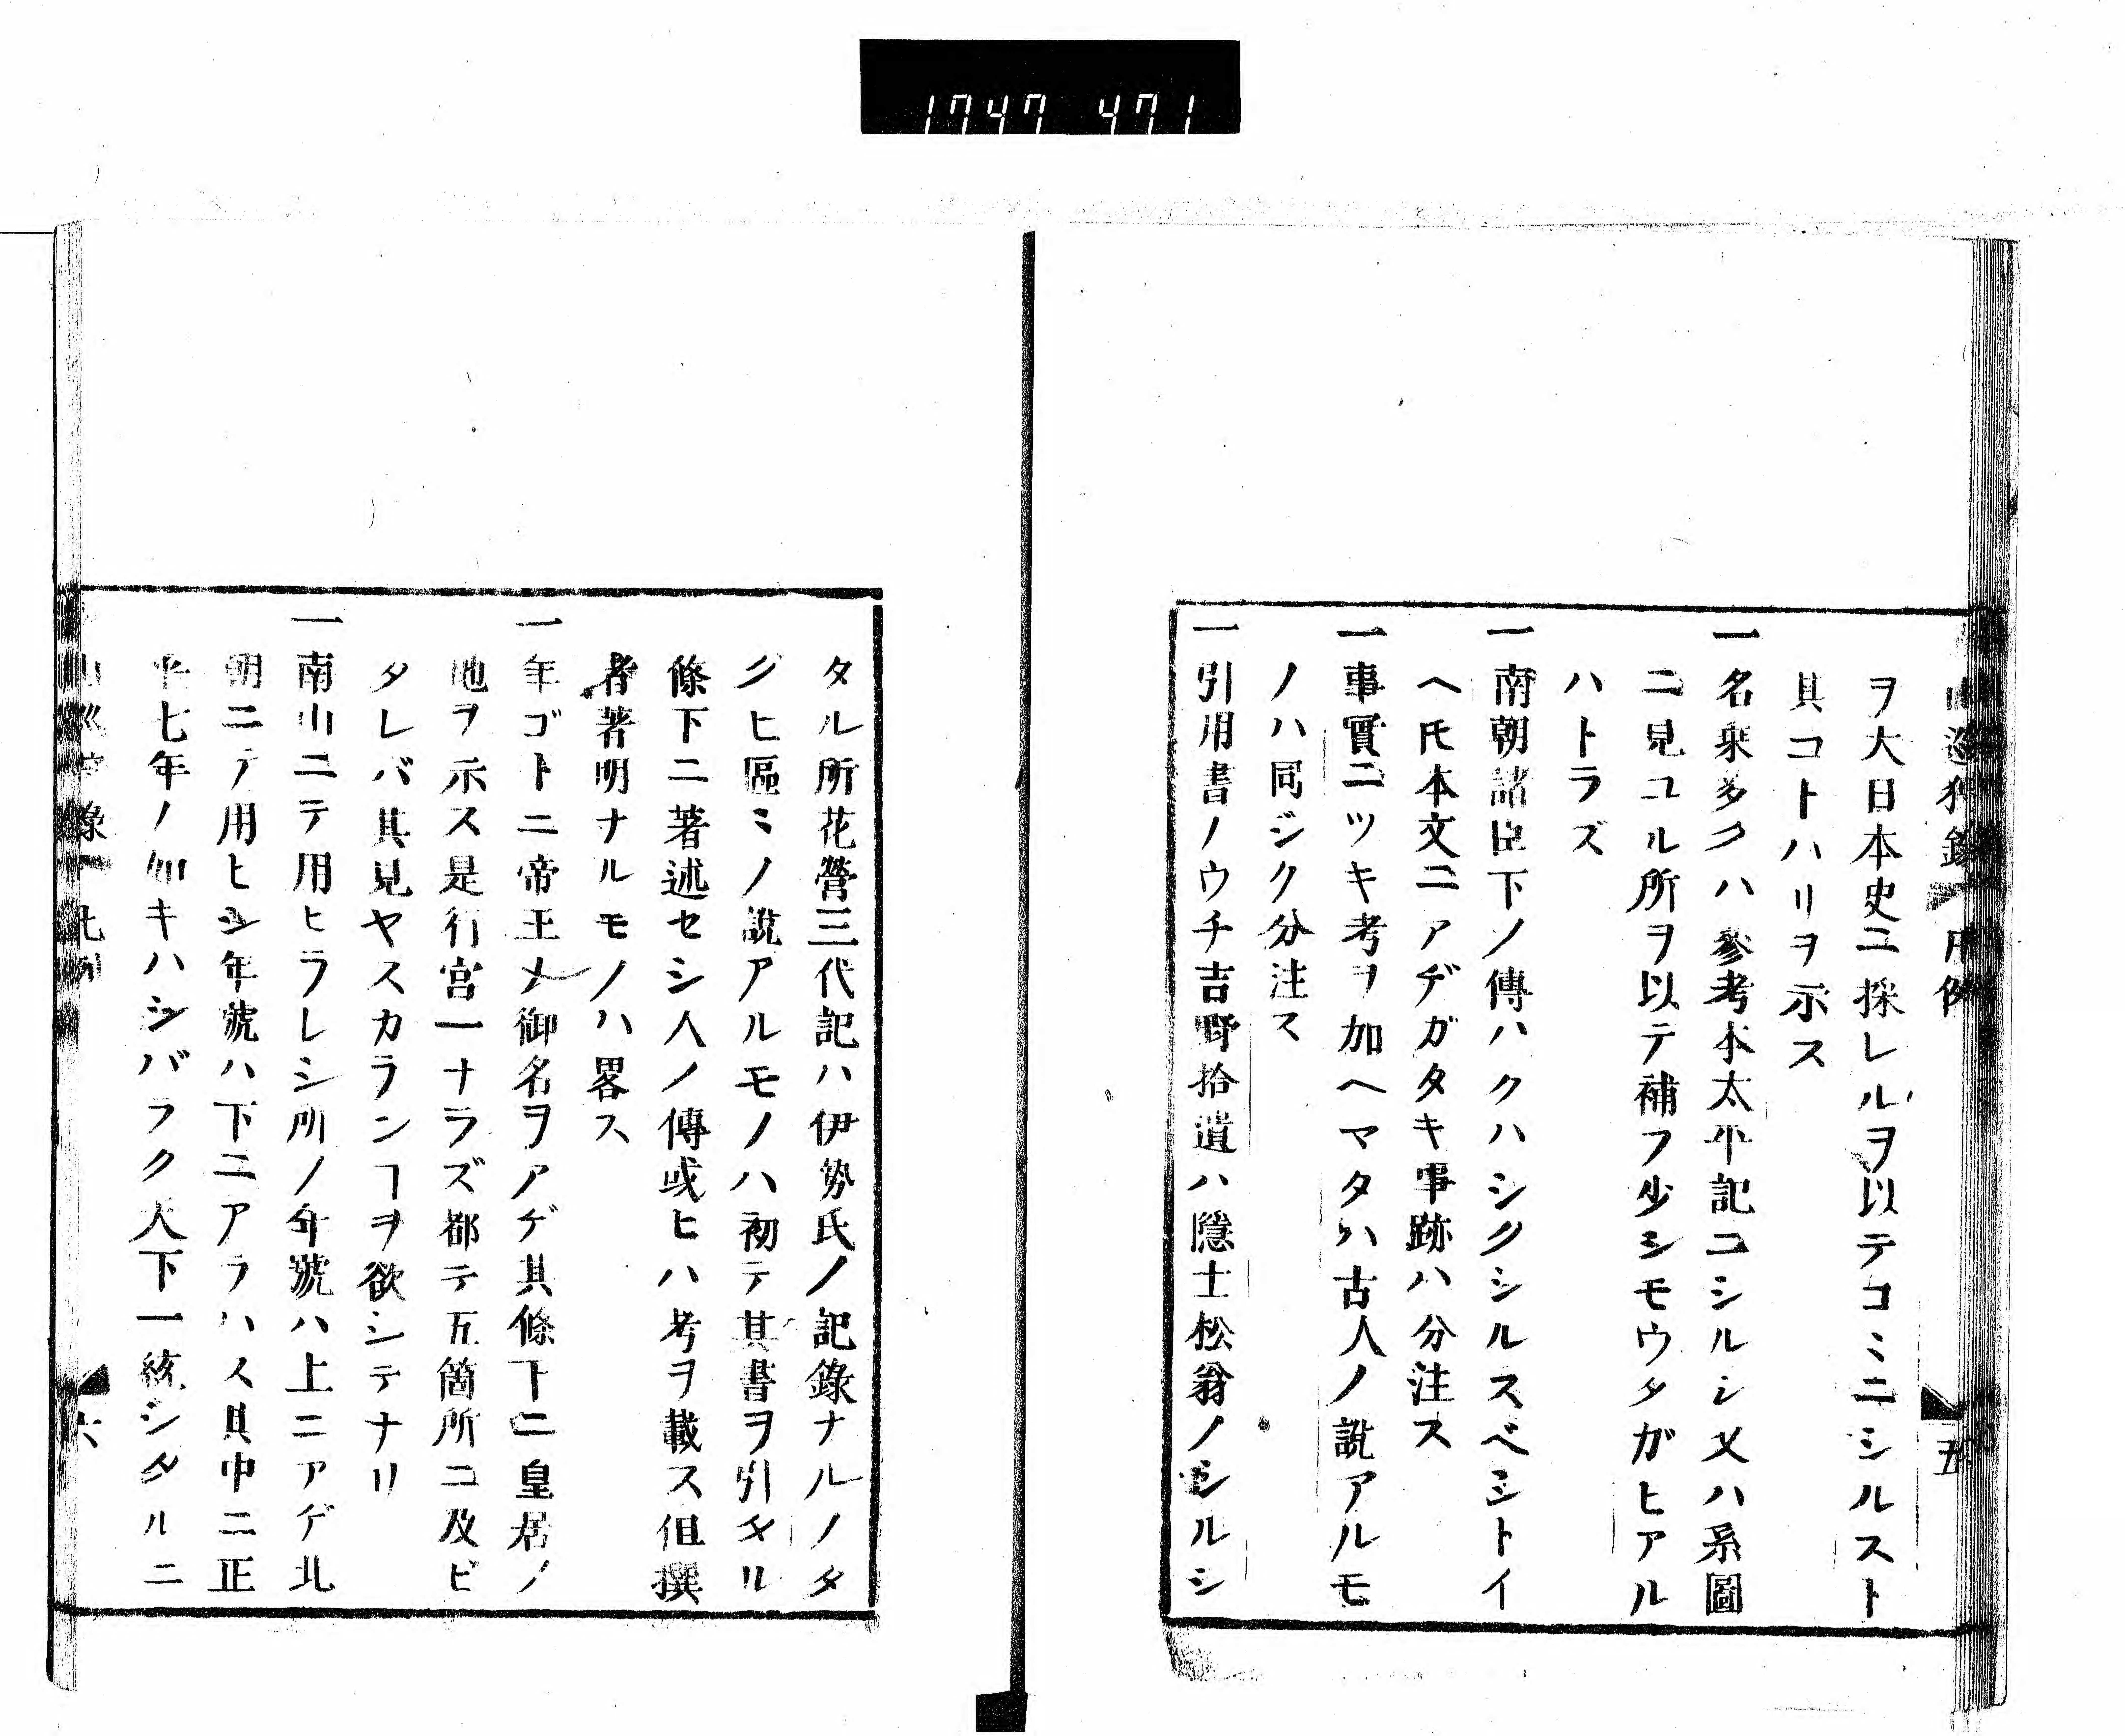 1747 471
山巡狩録 凡例 五
ヲ大日本史ニ採レルヲ以テコヽニシルスト
其コトハリヲ示ス
一名乗多クハ參考本太平記ニシルシ又ハ系圖
ニ見ユル所ヲ以テ補フ少シモウタガヒアル
ハトラズ
一南朝諸臣下ノ傳ハクハシクシルスベシトイ
ヘ𪜈本文ニアヂガタキ事跡ハ分注ス
一事實ニツキ考ヲ加ヘマタハ古人ノ說アルモ
ノハ同ジク分注ス
一引用書ノウチ吉野拾遺ハ隱士松翁ノシルシ
タル所花營三代記ハ伊勢氏ノ記錄ナルノタ
グヒ區ミノ說アルモノハ初テ其書ヲ引タル
條下ニ著述セシ人ノ傳或ヒハ考ヲ載ス但撰
者著明ナルモノハ畧ス
一年ゴトニ帝王ノ御名ヲアゲ其條下ニ皇居ノ
地ヲ示ス是行宮一ナラズ都テ五箇所ニ及ビ
タレバ其見ヤスカランヿヲ欲シテナリ
一南山ニテ用ヒラレシ所ノ年號ハ上ニアゲ北
朝ニテ用ヒシ年號ハ下ニアラハス其中ニ正
平七年ノ如キハシバラク天下一統シタルニ
山巡狩錄 凡例 六